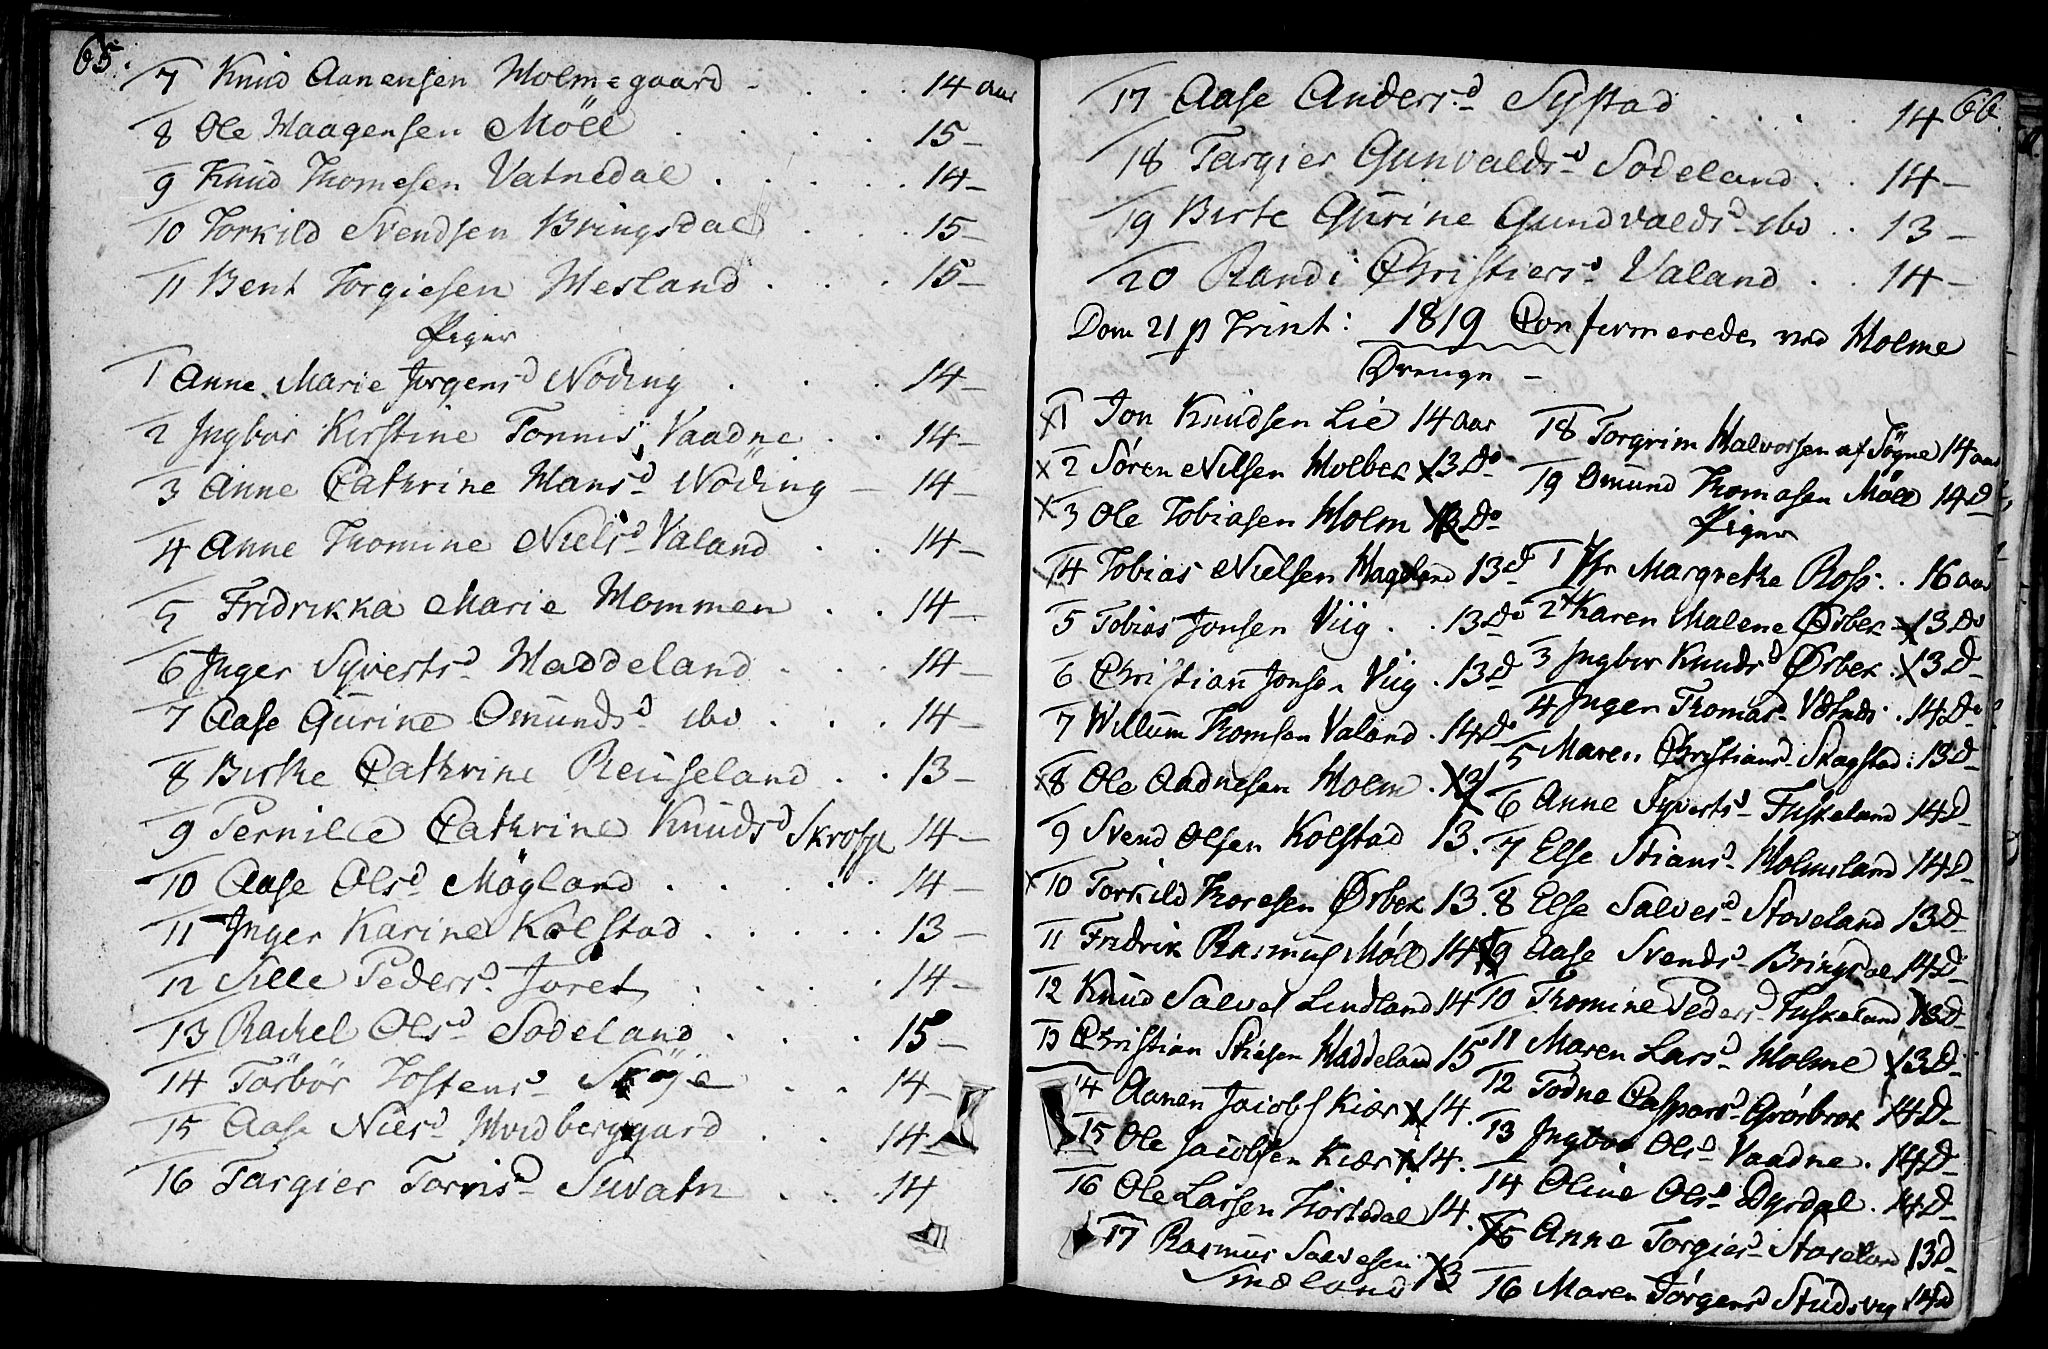 65.
7 Knud Aanensen Holmegaard . . . 14 aar
8 Ole Haagensen Möll . . . 15 -
9 Knud Thomesen Vatnedal . . . . 14 -
10 Torkild Svendsen Bringsdal . . . 15 -
11 Bent Torgiesen Mesland . . . 15 -
Piger
1 Anne Marie Jörgensd Nöding . . . 14 -
2 Ingbor Kirstine Tönnisd Vaadne . . 14 -
3 Anne Cathrine Hansd Nöding - 14 -
4 Anne Thomine Nielsd Valand . . 14 -
5 Fridrikka Marie Mommen . . 14 -
6 Inger Syvertsd Haddeland . . . 14 -
7 Aase Gurine Omundsd ibd . . . 14 -
8 Birthe Cathrine Reuseland . . 13 -
9 Pernille Cathrine Knudsd 14 -
10 Aase Olsd Mögland . . . . . 14 -
11 Inger Karine Kolstad . . . . . 13 -
12 Sille Pedersd . . . . 14 -
13 Rachel Olsd Sodeland . . . 15 -
14 Törbör Tostensd . . 14 -
15 Aase Nielsd Hvidberggaard . . 14 -
16 Targier Tarrisd . . . 14
66.
17 Aase Andersd Systad . . . . 14
18 Targier Gunvaldsd Sodeland . . 14 -
19 Birte Gurine Gundvaldsd ibd . . 13 -
20 Randi Christiersd Valand . . 14 -
Dom 21 p Trinit: 1819 Confirmerede ved Holme
Drenge -
x1 Jon Knudsen Lie 14 aar
x2 Sören Nilsen Holbek x13 Do
x3 Ole Tobiasen Holm 13 Do
x4 Tobias Nielsen Hageland 13 D
5 Tobias Jonsen Viig . . 13 Do
6 Christian Jonsen Viig . 13 D
7 Willum Thomsen Valand . 14 Do
x8 Ole Aadnesen Holm .
9 Svend Olsen Kolstad 13.
x10 Torkild Thoresen Ørbek 13.
11 Fridrik Rasmus Möll 14
12 Knud Salves Lindland 14
13 Christian Stiesen Haddeland 15
14 Aanen Jacobs Kiær x14.
15 Ole Jacobsen Kiær 14.
16 Ole Larsen Hortedal 14.
17 Rasmus Salvesen
Smeland 13
18 Torgrim Halvorsen af Sögne 14 aar
19 Omund Thomasen Möll 14 D
Piger
1 Margrethe Ross . . 16 aar
2 Karen Malene Ørbek x13 Do
3 Ingbor Knudsd Ørbek . x13 D
4 Inger Thomasd . 14 Do
5 Maren Christiansd Skagstad : 13 D
6 Anne Syvertsd Fuskeland 14 D
7 Else Stiansd Holmesland 14 D
8 Else Salvesd Stoveland 13 D
9 Aase Svendsd Bringsdal 14 D
10 Thomine Pedersd Fuskeland 13 D
11 Maren Larsd Holme x13 D
12 Todne Caspersd Grörbrok 14 D
13 Ingbor Olsd Vaadne . 14 D
14 Oline Olsd Dyrdal . 14 D
15 Anne Torgiersd Stoveland 13 D
16 Maren Jörgensd Studevig 14 D